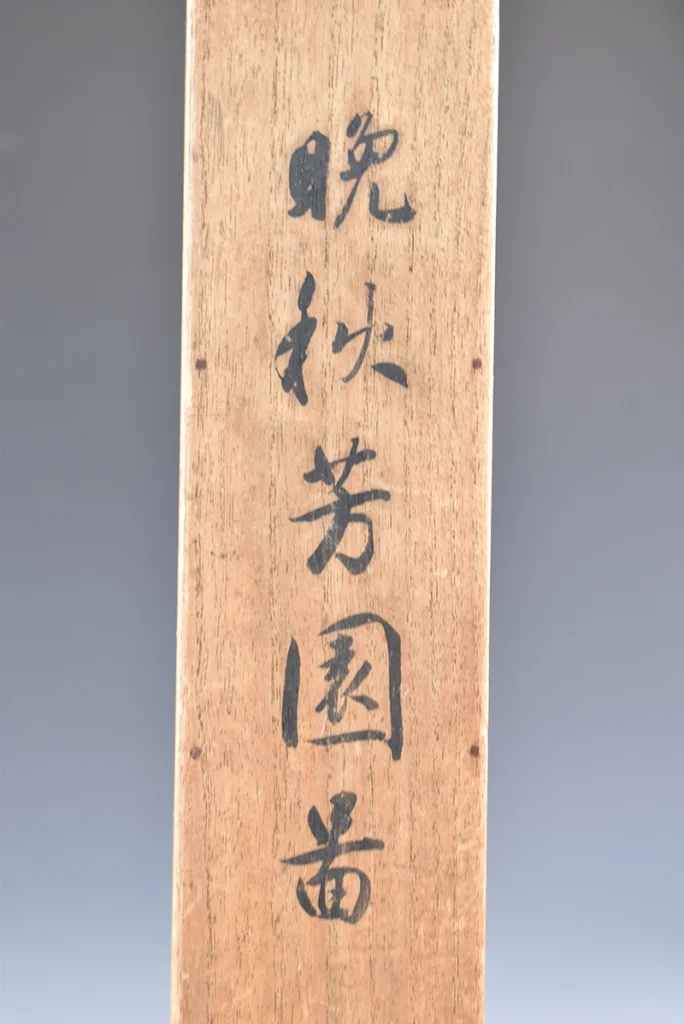 晩秋芳園啚